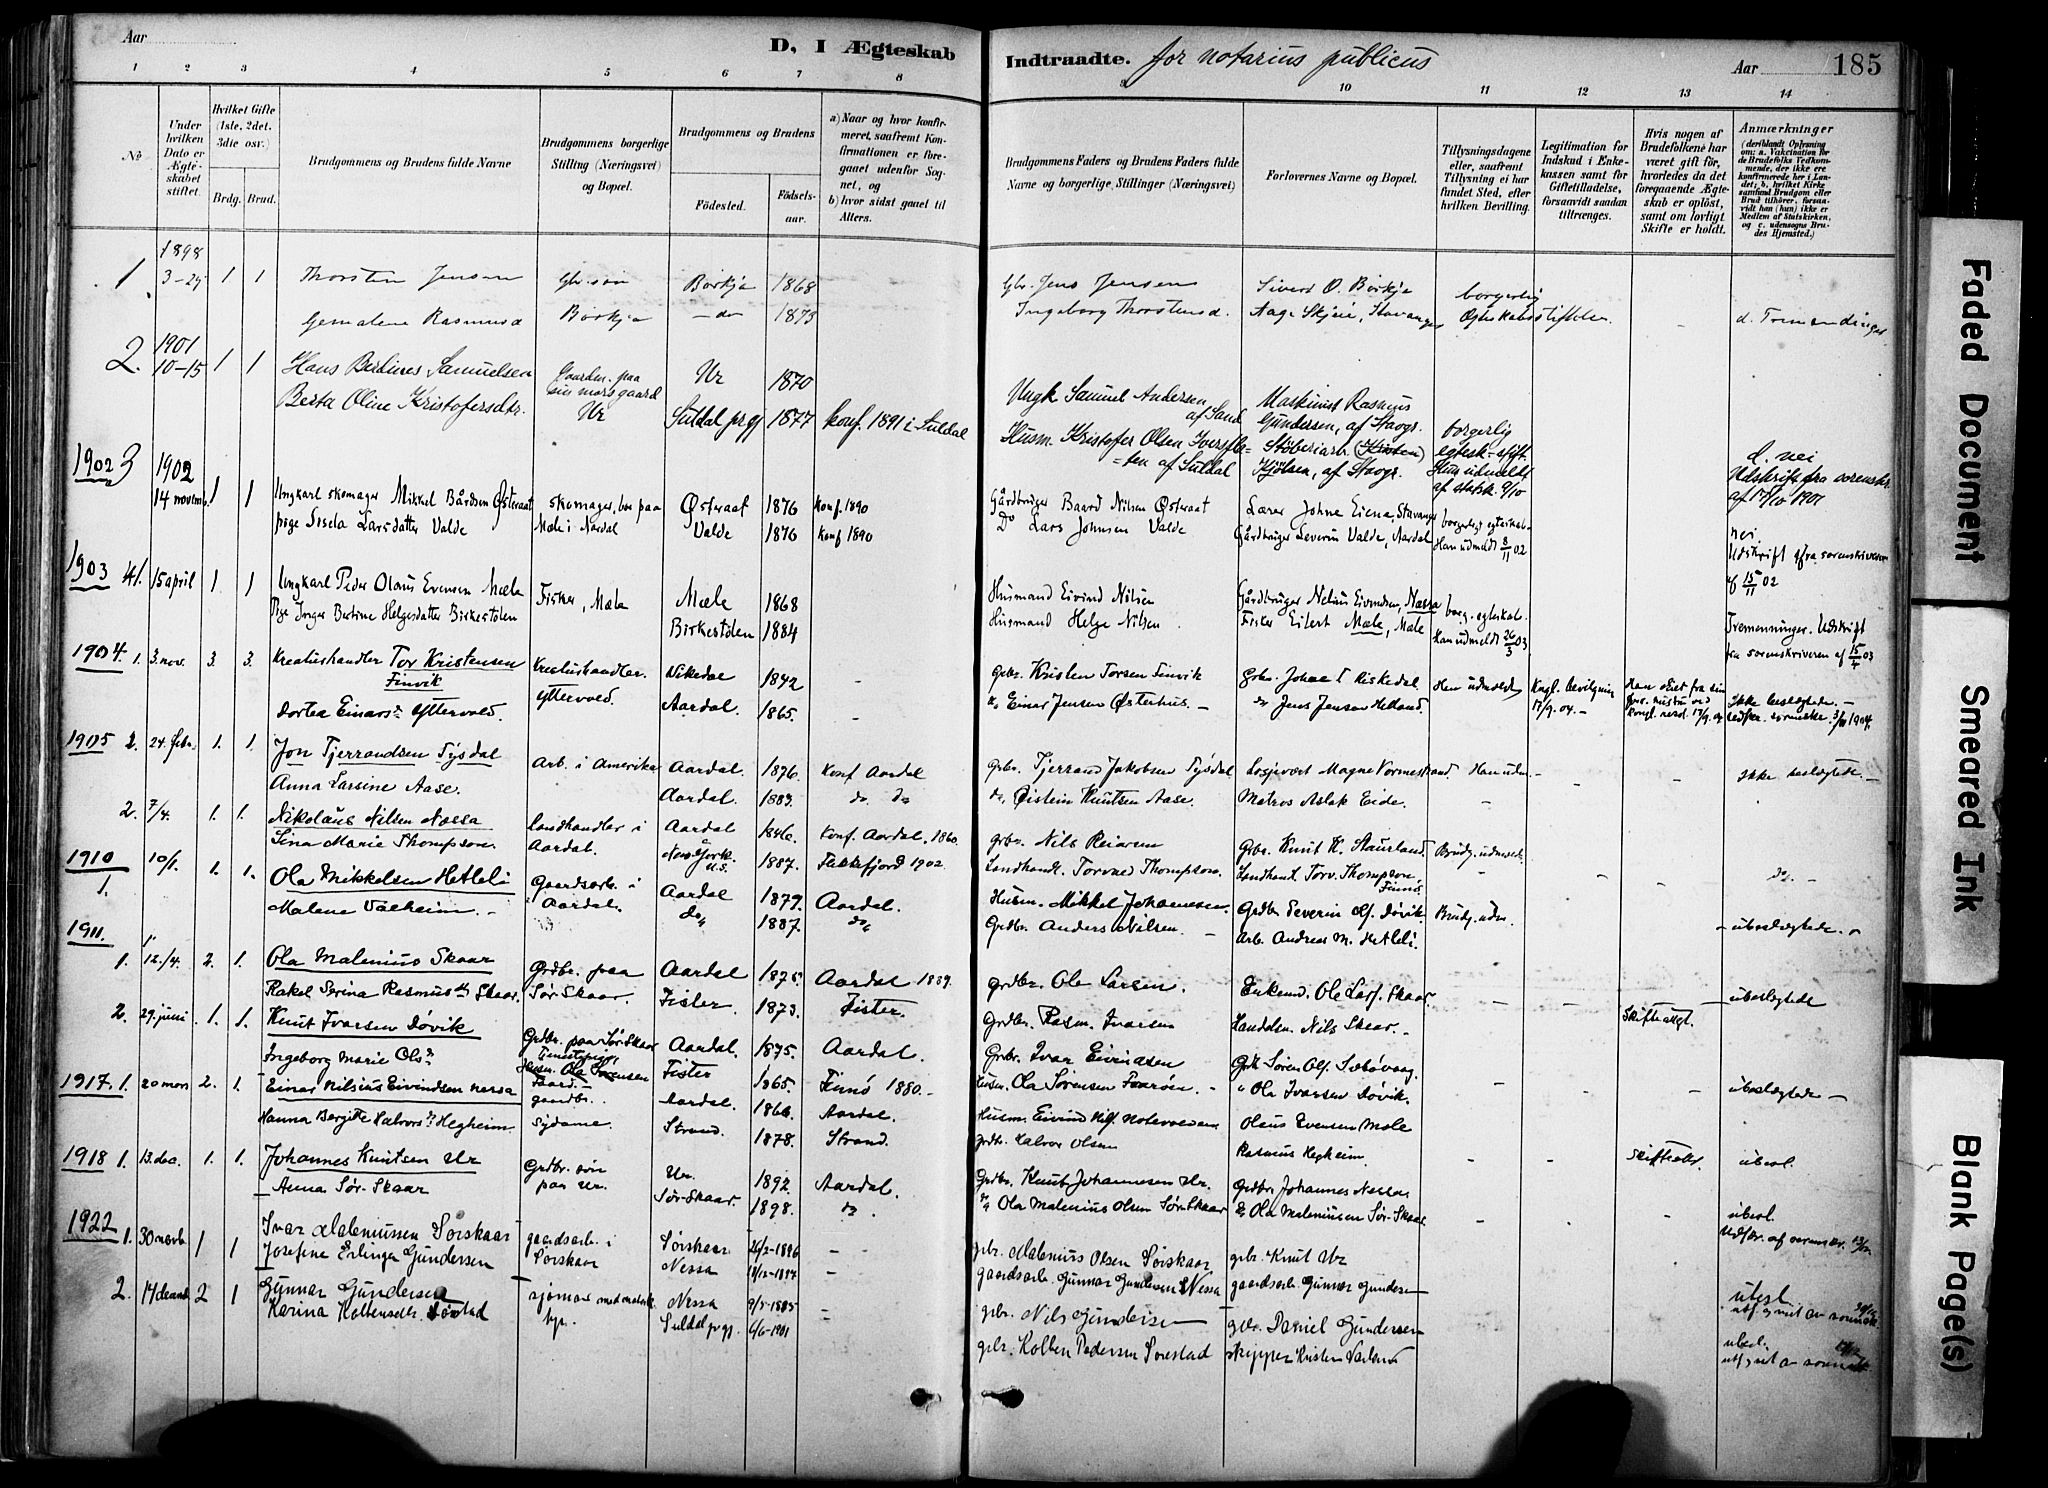 Aar
D, I Ægteskab
Indtraadte. for notarius publicus
Aar
185
1 2 3 4 5 6 7 8 10 11 12 13 14
No
Under hvilken Dato er Ægteskabet stiftet.
Hvilket Gifte (1ste, 2det, 3die osv.)
Brdg. Brud.
Brudgommens og Brudens fulde Navne
Brudgommens borgerlige Stilling (Næringsvei) og Bopæl.
Brudgommens og Brudens
Fødested.
Fødsels-aar.
a) Naar og hvor konfirmeret, saafremt Konfirmationen er foregaaet udenfor Sognet, og
b) hvor sidst gaaet til Alters.
Brudgommens Faders og Brudens Faders fulde Navne og borgerlige Stillinger (Næringsvei)
Forlovernes Navne og Bopæl.
Tillysningsdagene eller, saafremt Tillysning ei har fundet Sted, efter hvilken Bevilling.
Legitimation for Indskud i Enkekassen samt for Giftetilladelse, forsaavidt saadan tiltrænges.
Hvis nogen af Brudefolkene har været gift før, hvorledes da det foregaaende Ægteskab er opløst, samt om lovligt Skifte er holdt.
Anmærkninger
(deriblandt Oplysning om: a. Vaccination for de Brudefolks Vedkommende, der ikke ere konfirmerede her i Landet; b. hvilket Kirkesamfund Brudgom eller Brud tilhører, forsaavidt han (hun) ikke er Medlem af Statskirken, og c. udensogns Brudes Hjemsted.)
1898
1 3-29 1 1 Thorsten Jensen Gbr. søn Børkje 1868 Gbr. Jens Jensen Sivert O. Børkje borgerlig
Rasmusd Børkje - do 1873 Ingeborg Thorstensd. Aage Skjeie, Stavanger - d. Tremendinger
1901
2. 10-15 1 1 Hans Berlines Samuelsen Gaardm. paa sin mors gaard Ur 1870 Ungk Samuel Andersen af Sand Maskinist Rasmus Gundersen, af Stavgr. borgerlig
Berta Oline Kristofersdtr. Ur Suldal prgj 1877 konf. 1891 i Suldal Husm. Kristofer Olsen af Suldal Kjølsen, af Stavgr. af statsk. 9/10 d. nei
Udskrift fra sorenskr. af 17/10 1901
1902 3 1902
14 novemb. 1 1 Ungkarl skomager Mikkel Bårdsen Østeraat skomager, bor paa Østeraat 1876 Konf. 1890 Gårdbruger Baard Nilsen Østeraat Lærer Johne Eiena, Stavanger borgerligt egteskab.
pige Sisela Larsdatter Valde Mæle i Aardal Valde 1876 Konf 1890 Do Lars Johnsen Valde Gårdbruger Severin Valde, Aardal Han udmeldt 8/11 02 nei.
Udskrift fra sorenskriveren af 15/11 02
1903 4. 15 april 1 1 Ungkarl Peder Olaus Evensen Mæle Fisker, Mæle Mæle 1868 Husmand Eivind Nilsen Gårdbruger Nelius Eivendsen, Næssa borg. egteskab.
Pige Inger Bertine Helgesdatter Birkestølen Birkestølen 1884 Husmand Helge Nilsen Fisker Eilert Mæle, Mæle Han udmeldt 26/3 03 Tremenninger. Udskrift fra sorenskriveren af 15/4 03
1904. 1. 3. nov. 3. 3. Kreaturhandler Tor Kristensen Finvik Kreaturhandler. Vikedal 1842 - grbr. Kristen Torsen Finvik Johan T. Riskedal. Han udmeldt Kngl. bevilgning 17/9.04. - kongl. resol. 17/9.04 Ikke beslegtede. -
Dortea Einarsdr Yttervold. Yttervold. Aardal. 1865. - do Einar Jensen Østerhus. - do Jens Jensen Helland. 1904.
1905 2. 24. febr. 1. 1. Jon Tjerrandsen Tysdal Arb. i Amerika Aardal. 1876. Konf Aardal grbr. Tjerrand Jakobsen Tysdal Logjevært Magne Vormestrand. Han udm. - - - Ikke beslegtede. -
Anna Larsine Aase. Aardal. 1883. do. do do. Øistein Knutsen Aase. Matros Aslak Eide. -
2. 7/4. 1. 1. Nikolaus Nilsen Nessa Landhandler i Aardal 1846. Konf. Aardal. 1860. grbr. Nils Reiarsen Grbr. Knut K. Staurland. Brudg. udmeldt. - - - do. -
Lina Marie Thompson. Aardal. New York U.S. 1887. 1902. Landhandl. Torvald Thompson. Landhand. Torv. Thompson, Finnø.
1910 10/1. 1. 1. Ola Mikkelsen Hetleli Gaardsarb. i Aardal 1879. Aardal. Husm. Mikkel Johannesen. Grdbr Severin Olf. Døvik. Brudg. udm.
1. Malene Valheim. - Aardal. do. 1887. do. Grdbr. Anders Nilsen. - Arb. Andreas M. Hetleli. - ubeslegtede. -
1911.
1. 12/4. 2. 1. Ola Malenius Skaar Grdbr. paa Aardal 1875. Aardal 1889. grdbr. Ole Larsen. Enkemd. Ole Larf. Skaar. - - Skifteatt. - ubeslegtede
Rakel Serina Rasmusdr Skaar. Sør Skaar. Fister. 1873. Fister. Grdbr. Rasm. Ivarsen Handelsm. Nils Skaar. -
2. 29. juni 1. 1. Knut Ivarsen Døvik Grdbr. paa Sør Skaar Aardal. 1875. Aardal. Grbr. Ivar Eivindsen Grdb Søren Olf. - - - ubeslegtede -
Ingeborg Marie Olsdr Fister 1865. Finnø 1880. - Husm. Ola Sørensen " Ola Ivarsen Døvik.
1917. 1. 20 mars 2. 1. Einar Nilsius Eivindsen Nessa gaardbr. Aardal. 1866. Aardal. Husm. Eivind Olaus Evensen Mæle - - Skifteatt. ubesl.
Hanna Bergitte Halvorsdr Hegheim Strand. 1878. Strand. grdbr. Halvor Olsen Rasmus Hegheim.
1918 1. 13. dec. 1. 1. Johannes Knutsen Ur Grdbr. søn Ur. 1892. Aardal. Grdbr. Knut Johannesen Ur. Grdbr. Johannes Nessa. - - - ubesl.
Anna Sør-Skaar paa Ur. Sør-Skaar. 1898. do. do Ola Malenius Olsen Sør-Skaar Ola Maleniusen Sør-Skaar.
1922
1. 30 novb. 1 1 Ivar Maleniussen Sørskaar gaardsarb. i Sørskaar 26/2-1896 - - gbr. Malenius Olsen Sørskaar gbr. Knut Ur
Josefine Erlinga Gundersen Sørskaar Nessa - gaardsarb. Gunnar Gundersen Nessa gaardsarb. Gunnar Gundersen ubesl.
2. 14 decemb. 2 1 Gunnar Gundersen Nessa 9/5-1885 - gbr. Nils Gundersen gbr. Daniel Gundersen
Karina Kolbensdtr. Sørestad Suldal prgj. 6/6-1901 gbr. Kolben Pedersen Sørestad skipper Kristen ubesl.
Faded Document
Smeared Ink
Blank Page(s)